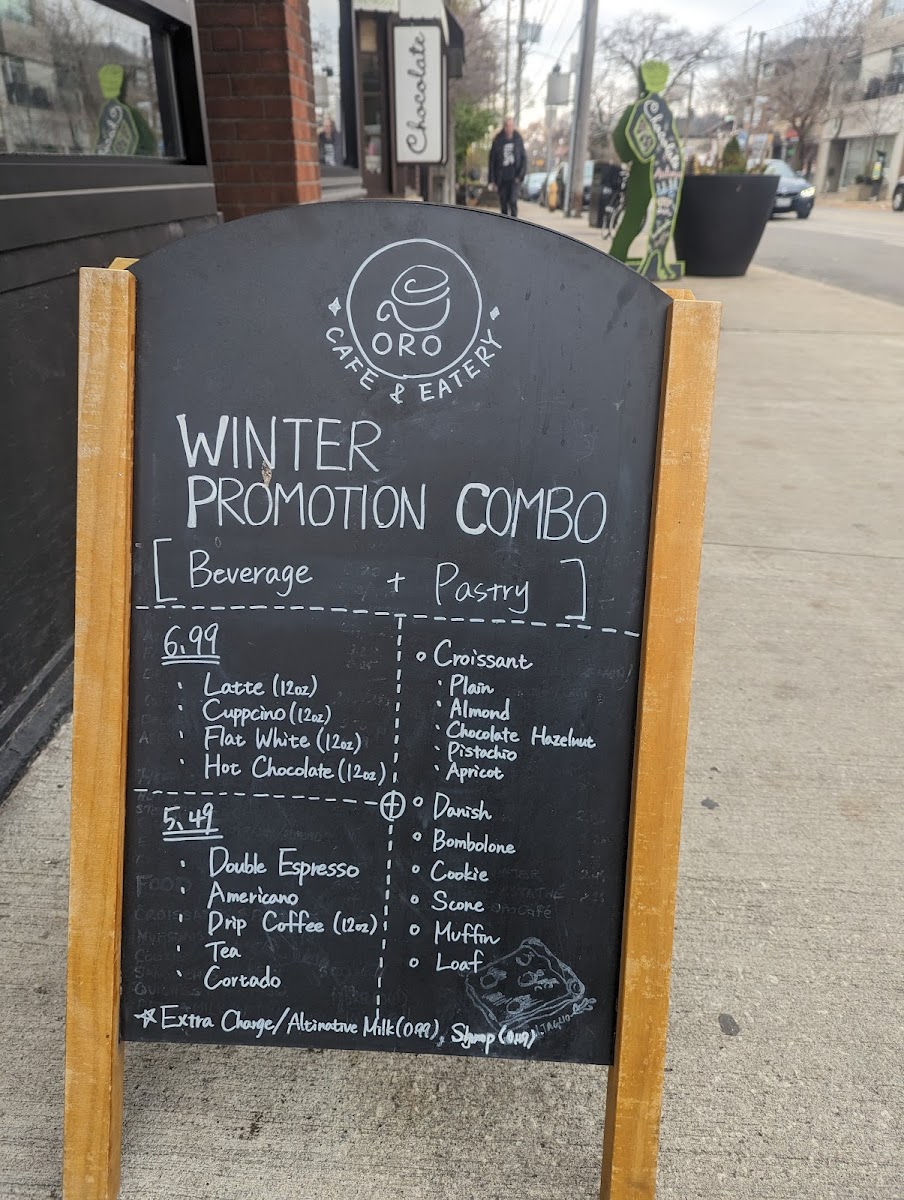 Chocolate
ORO
CAFE & EATERY
WINTER
PROMOTION COMBO
[ Beverage + Pastry ]
6.99
Latte (12oz)
Cuppcino (12oz)
Flat White (12oz)
Hot Chocolate (12oz)
5.49
Double Espresso
Americano
Drip Coffee (12oz)
Tea
Cortado
Croissant
Plain
Almond
Chocolate Hazelnut
Pistachio
Apricot
Danish
Bombolone
Cookie
Scone
Muffin
Loaf
☆Extra Charge/Altinative Milk (0.99), Shyrop (0.49)